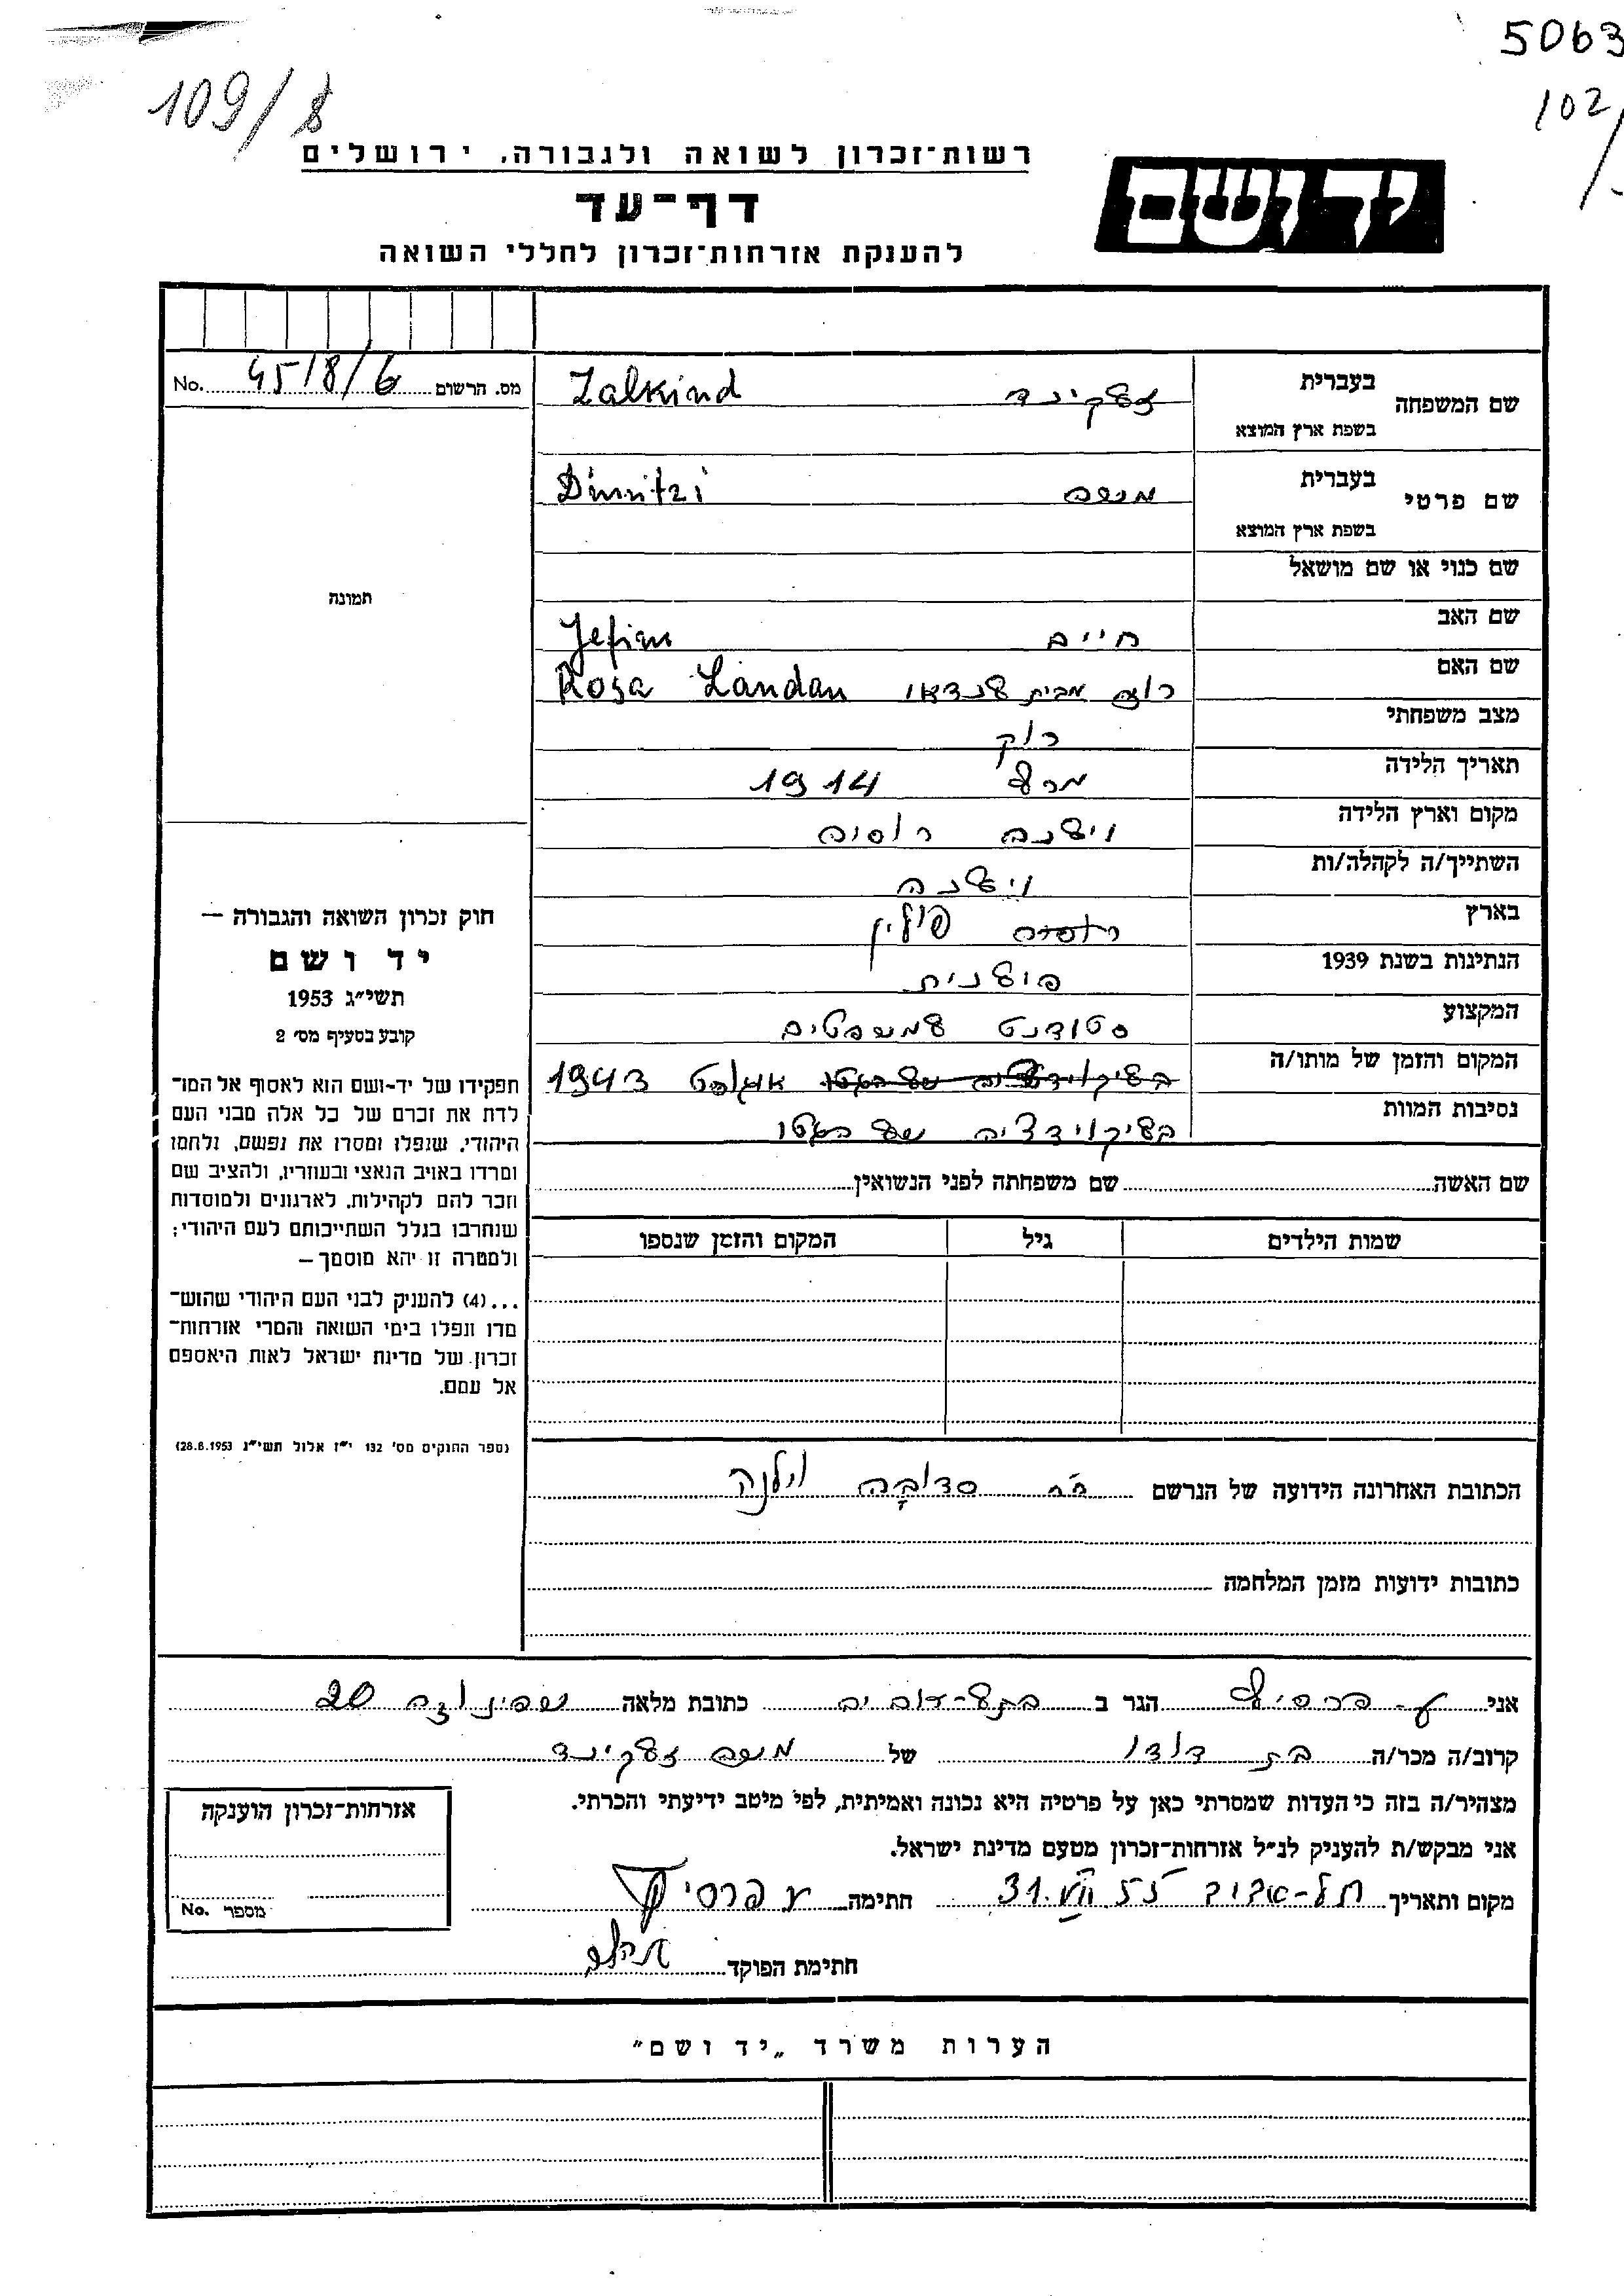 5063
102/
109/8
רשות־זכרון לשואה ולגבורה, ירושלים
יד ושם
דף־עד
להענקת אזרחות־זכרון לחללי השואה
No. 45/8/6 מס. הרשום
שם המשפחה בעברית זלקינד Zalkind
בשפת ארץ המוצא
שם פרטי בעברית מנשה Dimitri
בשפת ארץ המוצא
שם כנוי או שם מושאל
תמונה
שם האב חיים Jefim
שם האם רוזה מבית לנדאו Rosa Landau
מצב משפחתי רוק
תאריך הלידה מרץ 1914
מקום וארץ הלידה וילנה רוסיה
השתייך/ה לקהלה/ות וילנה
בארץ רוסיה פולין
הנתינות בשנת 1939 פולנית
המקצוע סטודנט למשפטים
המקום והזמן של מותו/ה בליקוידציה של הגטו אוגוסט 1943
נסיבות המוות בליקוידציה של הגטו
שם האשה שם משפחתה לפני הנשואין
שמות הילדים גיל המקום והזמן שנספו
חוק זכרון השואה והגבורה —
יד ושם
תשי״ג 1953
קובע בסעיף מס׳ 2
תפקידו של יד־ושם הוא לאסוף אל המו־
לדת את זכרם של כל אלה מבני העם
היהודי, שנפלו ומסרו את נפשם, נלחמו
ומרדו באויב הנאצי ובעוזריו, ולהציב שם
וזכר להם לקהילות, לארגונים ולמוסדות
שנחרבו בגלל השתייכותם לעם היהודי;
ולמטרה זו יהא מוסמך —
...(4) להעניק לבני העם היהודי שהוש־
מדו ונפלו בימי השואה והמרי אזרחות־
זכרון של מדינת ישראל לאות היאספם
אל עמם.
(ספר החוקים מס׳ 132 י״ז אלול תשי״ג 28.8.1953)
הכתובת האחרונה הידועה של הנרשם רח׳ סדובה וילנה
כתובות ידועות מזמן המלחמה
אני ע. פרסיץ הגר ב בתל־אביב כתובת מלאה שפינוזה 20
קרוב/ה מכר/ה בת דודו של מנשה זלקינד
מצהיר/ה בזה כי העדות שמסרתי כאן על פרטיה היא נכונה ואמיתית, לפי מיטב ידיעתי והכרתי.
אני מבקש/ת להעניק לנ״ל אזרחות־זכרון מטעם מדינת ישראל.
מקום ותאריך תל-אביב 31.VII 55 חתימה ע פרסיץ
חתימת הפוקד
אזרחות־זכרון הוענקה
No. מספר
הערות משרד „יד ושם״